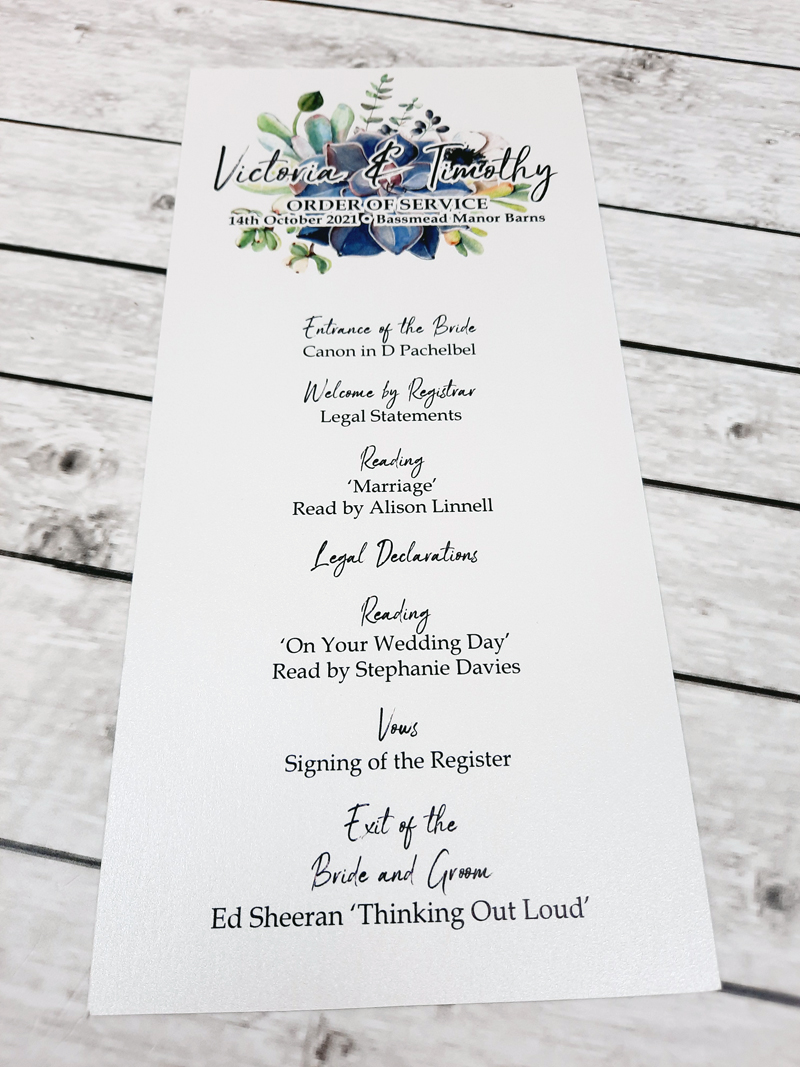 Victoria & Timothy
ORDER OF SERVICE
14th October 2021 • Bassmead Manor Barns
Entrance of the Bride
Canon in D Pachelbel
Welcome by Registrar
Legal Statements
Reading
‘Marriage’
Read by Alison Linnell
Legal Declarations
Reading
‘On Your Wedding Day’
Read by Stephanie Davies
Vows
Signing of the Register
Exit of the
Bride and Groom
Ed Sheeran ‘Thinking Out Loud’